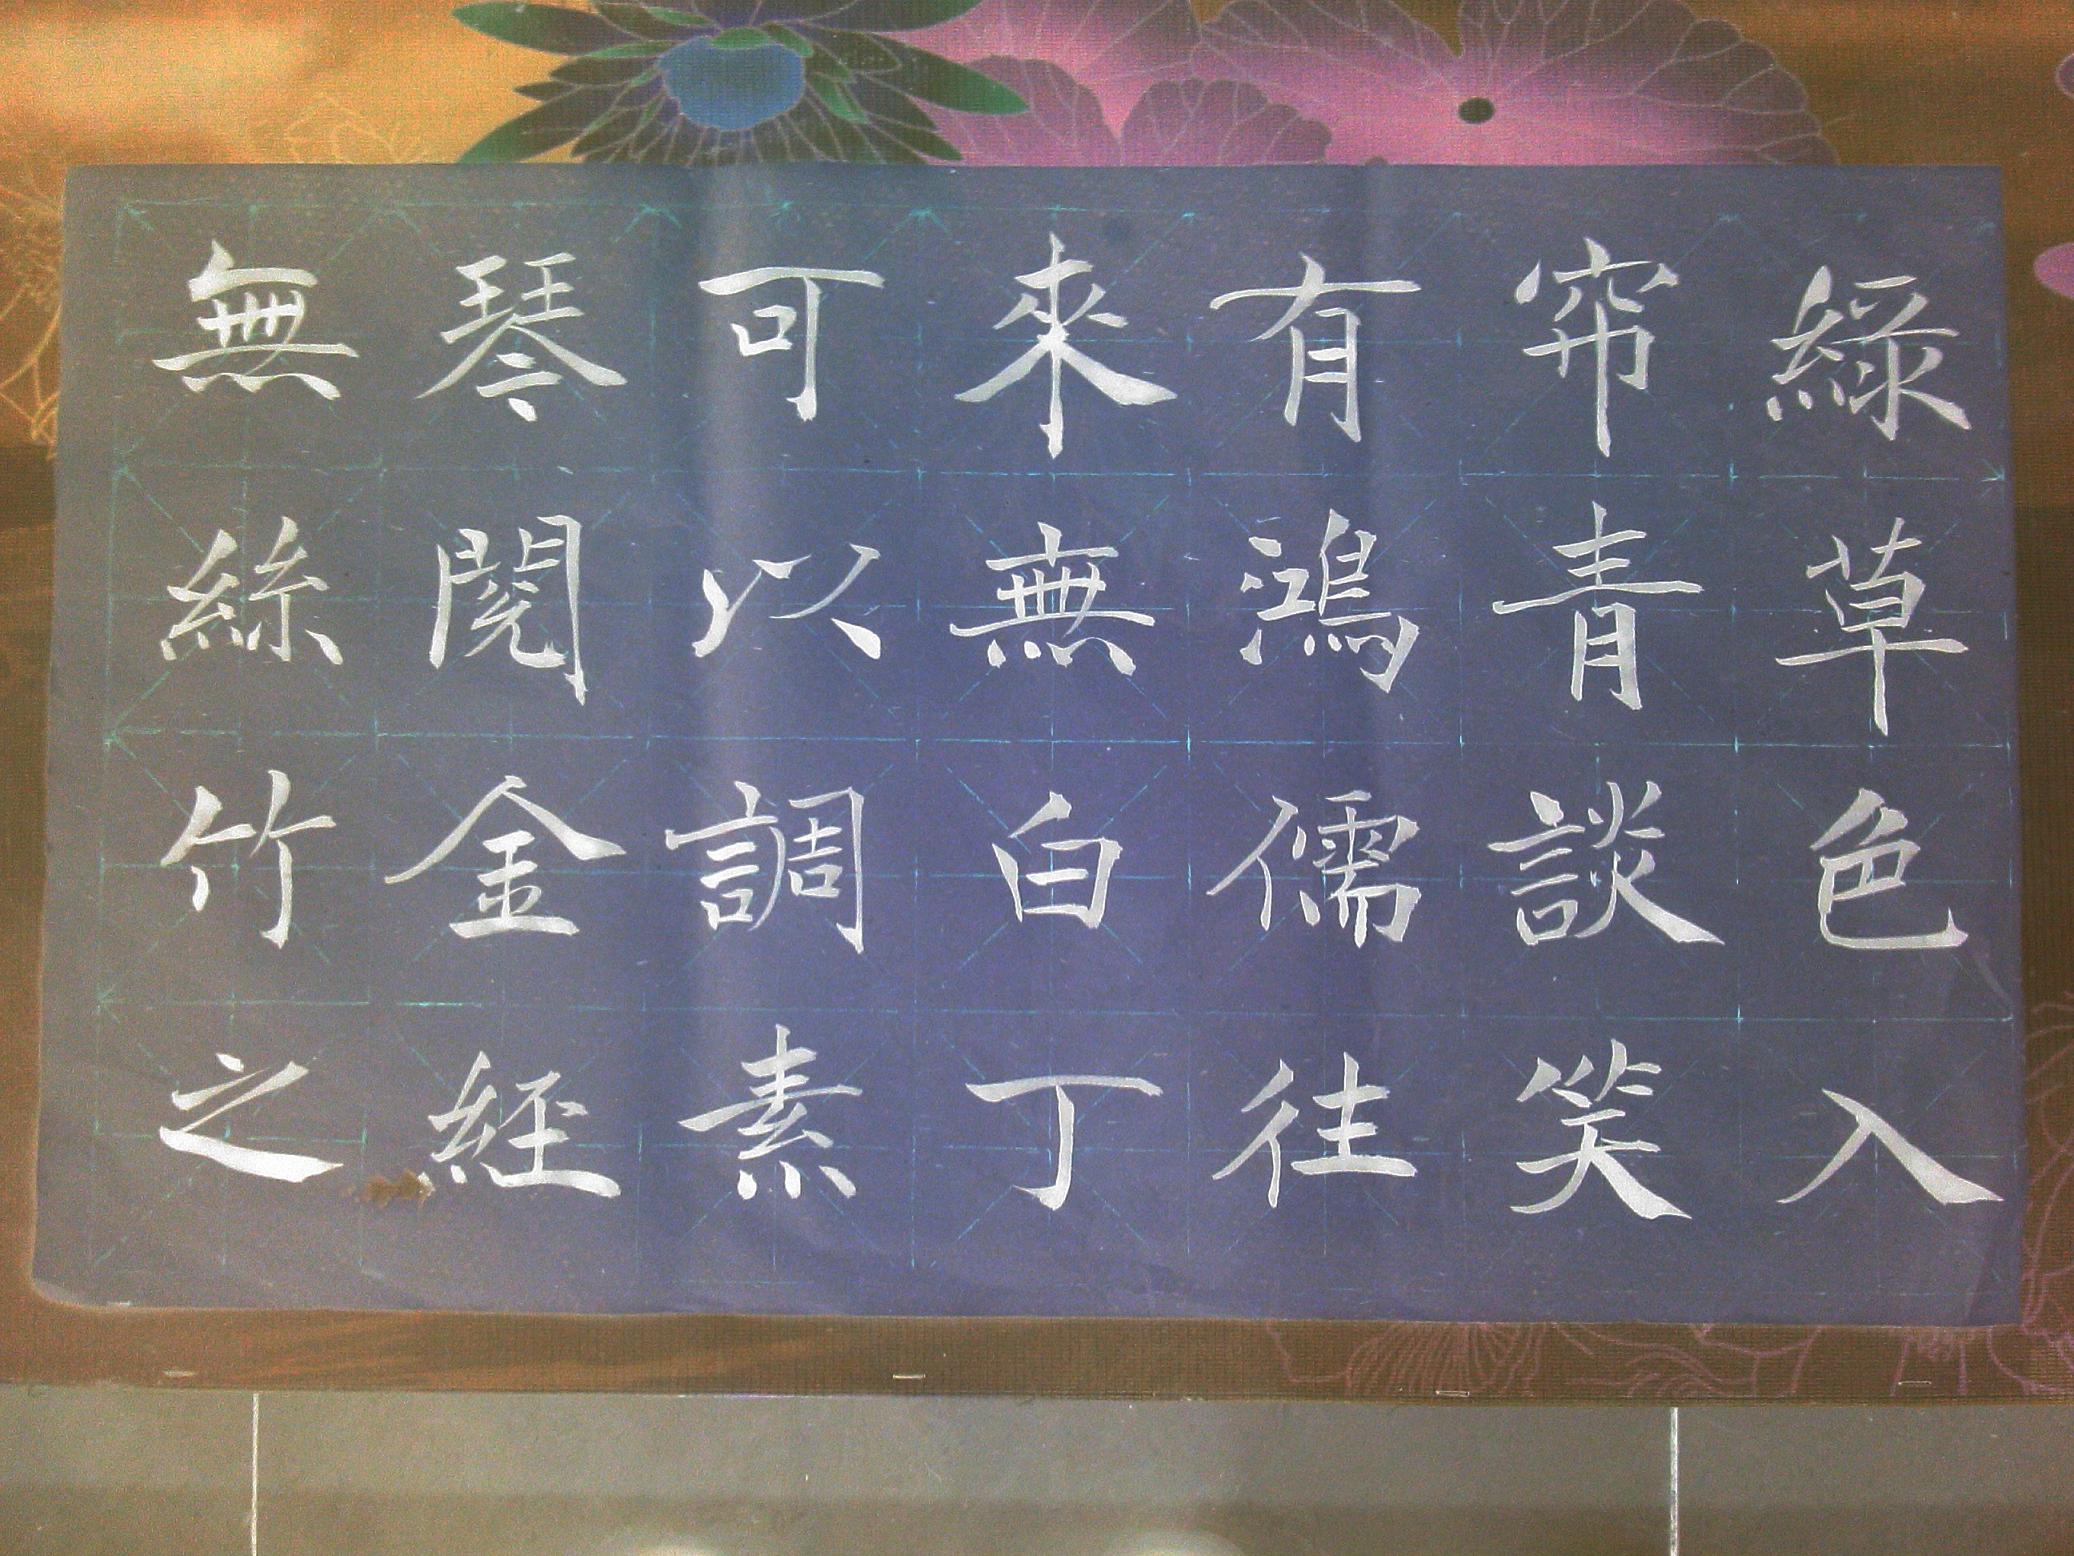 綠草色入
帘青談笑
有鴻儒往
來無白丁
可以調素
琴閱金經
無絲竹之